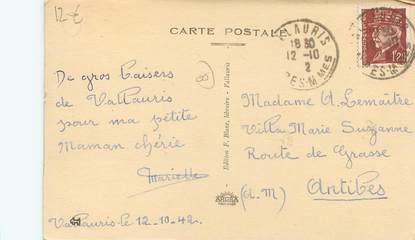 12 €
CARTE POSTALE
VALLAURIS
18 30
12 - 10
2
ALPES-MMES
1F20
De gros baisers
de Vallauris
pour ma petite
Maman chérie
Marielle
Vallauris le 12-10-42.
Edition F. Blanc, libraire - Vallauris
Madame A. Lemaître
Villa Marie Suzanne
Route de Grasse
Antibes
(A-M)